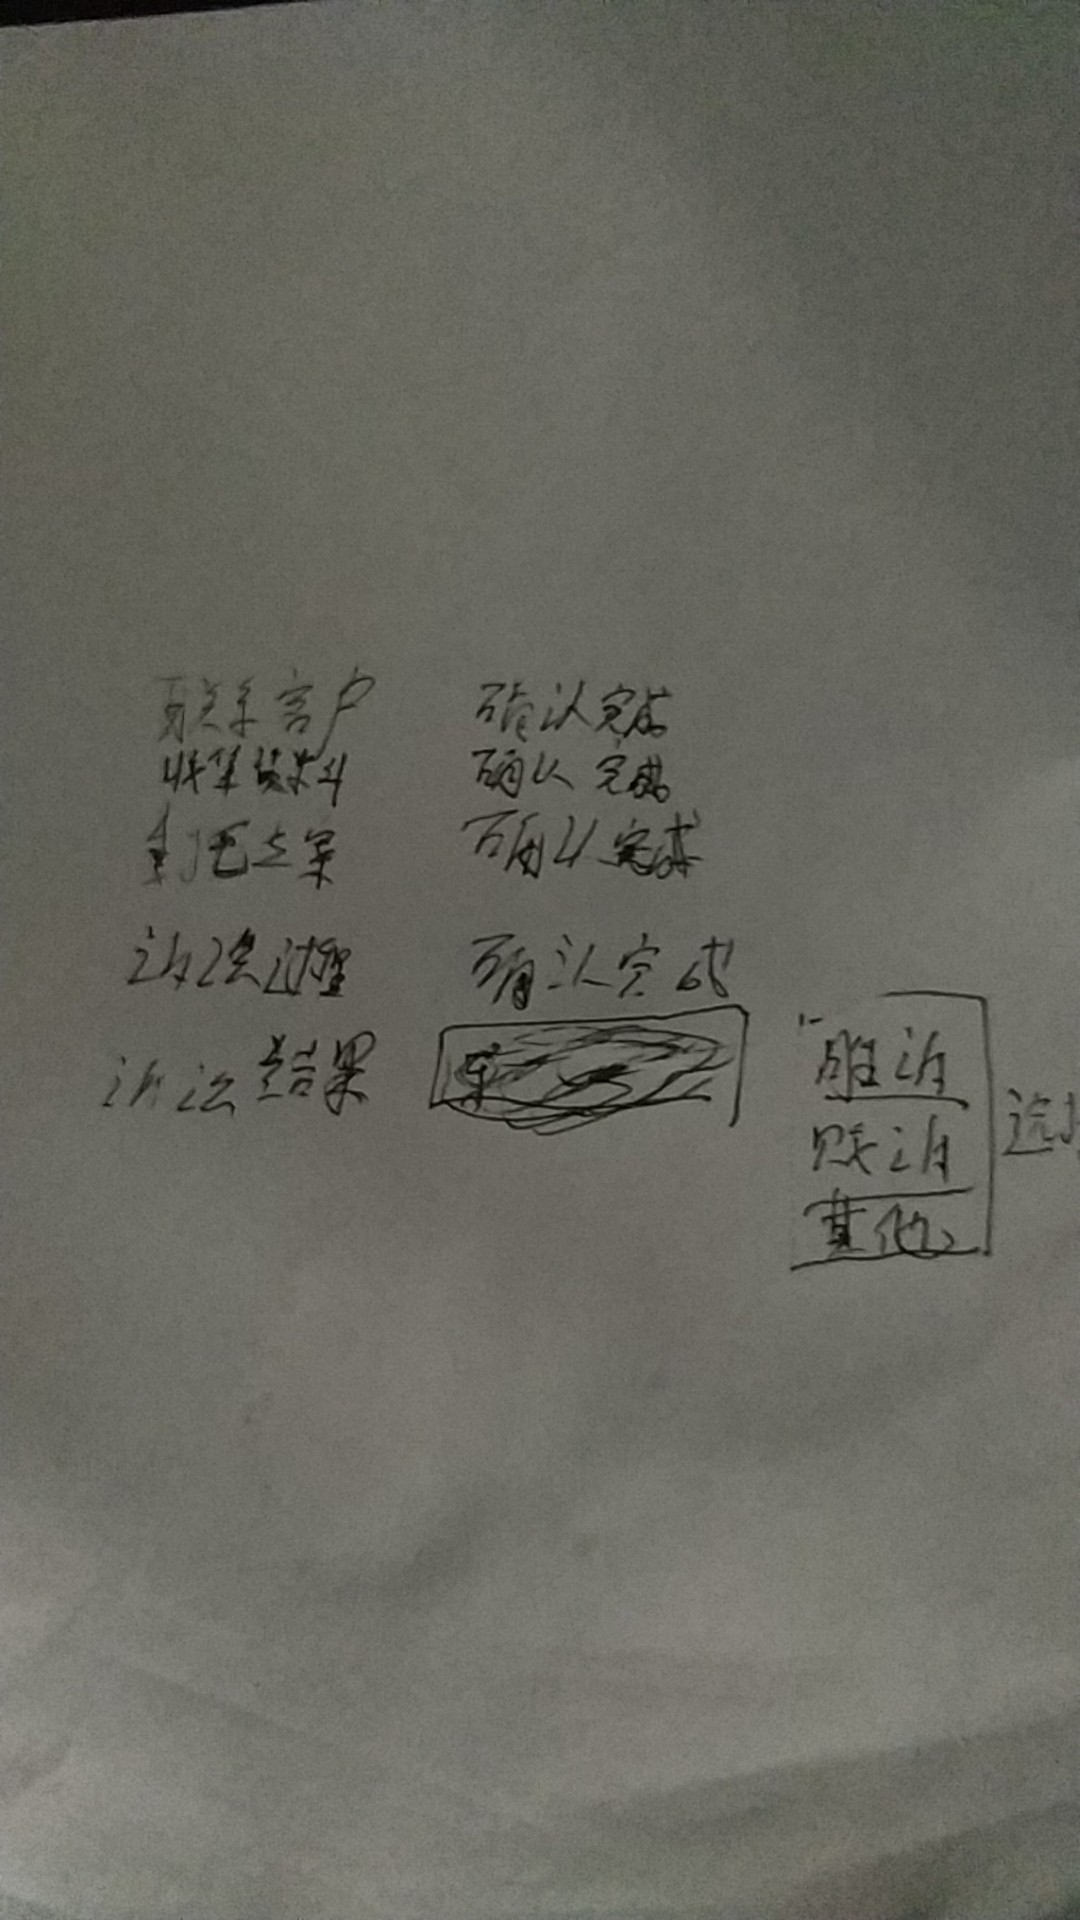 联系客户 确认完成
收集资料 确认完成
立案 确认完成
诉讼过程 确认完成
诉讼结果
胜诉
败诉
其他
选